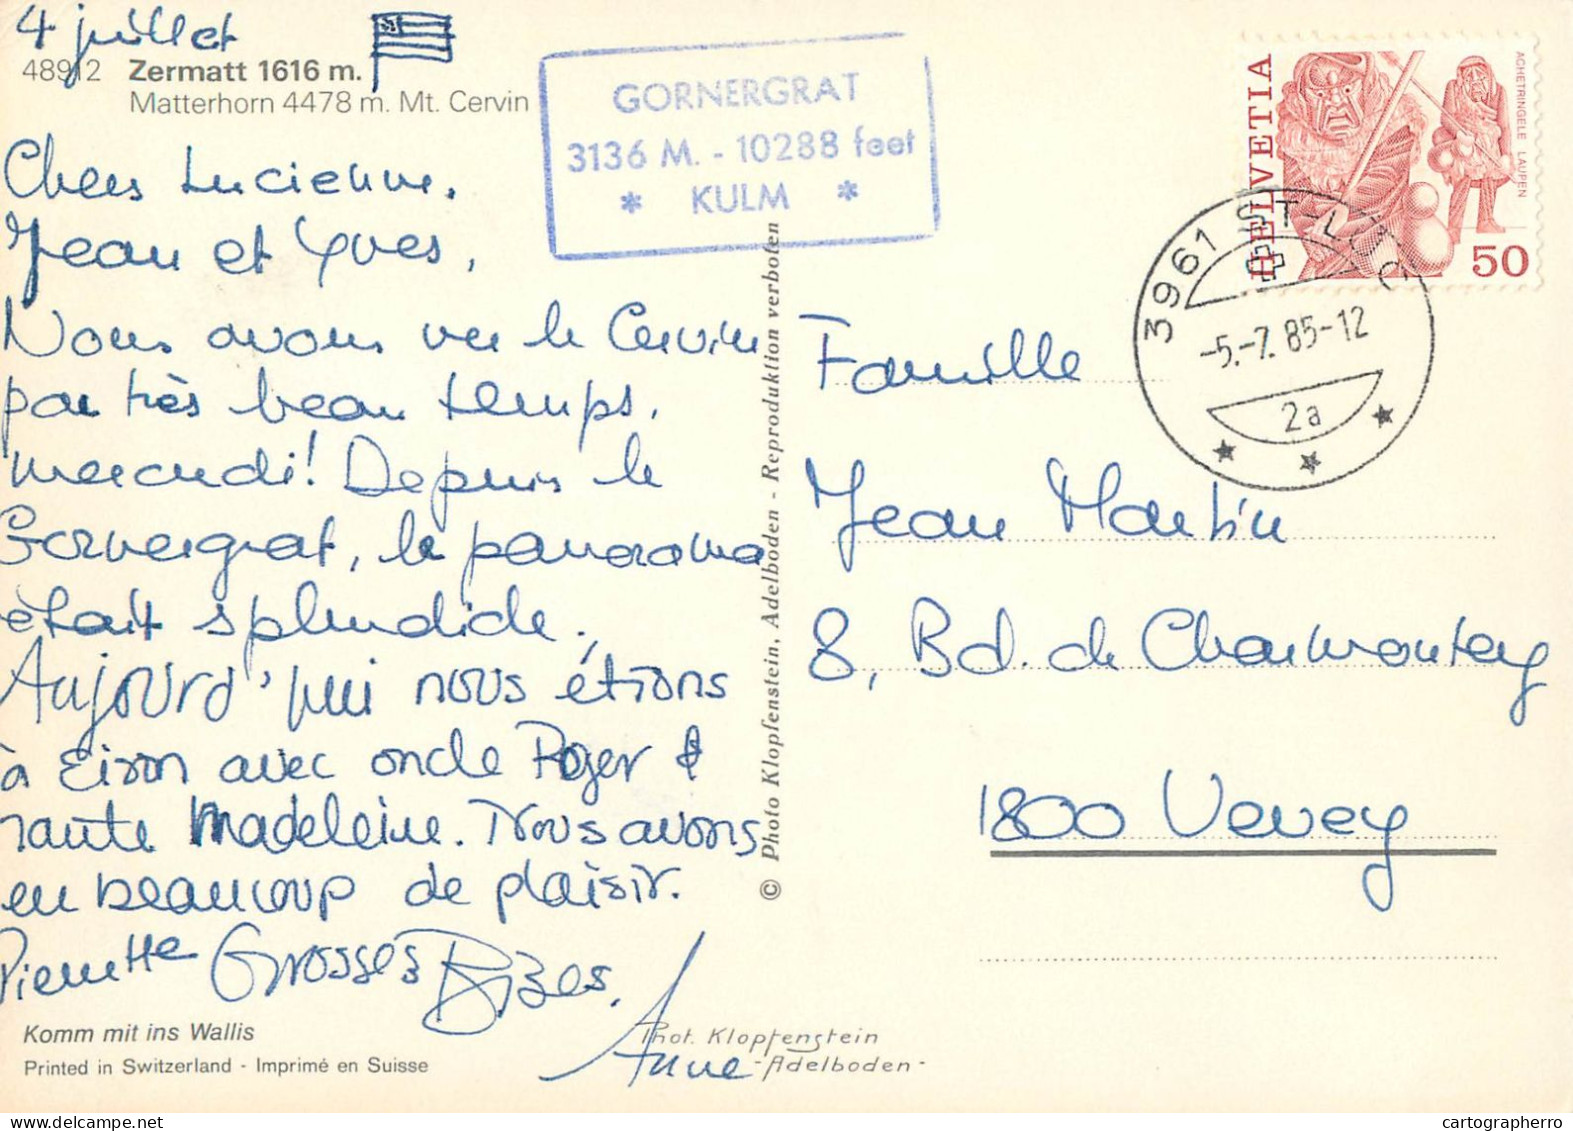 4 juillet
48912 Zermatt 1616 m.
Matterhorn 4478 m. Mt. Cervin
GORNERGRAT
3136 M. - 10288 feet
* KULM *
HELVETIA
ACHETRINGELE LAUPEN
50
3961 ST-LUC
-5.-7. 85-12
2a
Chers Lucienne,
Jean et Yves,
Nous avons vu le Cervin
par très beau temps,
mercredi! Depuis le
Gornergrat, le panorama
était splendide.
Aujourd'hui nous étions
à avec oncle Roger &
tante Madeleine. Nous avons
eu beaucoup de plaisir.
Pierrette Grosses Bizes.
Anne
Famille
Jean Martin
8, Bd. de Charmontey
1800 Vevey
© Photo Klopfenstein, Adelboden - Reproduktion verboten
Komm mit ins Wallis
Printed in Switzerland - Imprimé en Suisse
Phot. Klopfenstein
-Adelboden-
delcampe.net
cartographerro